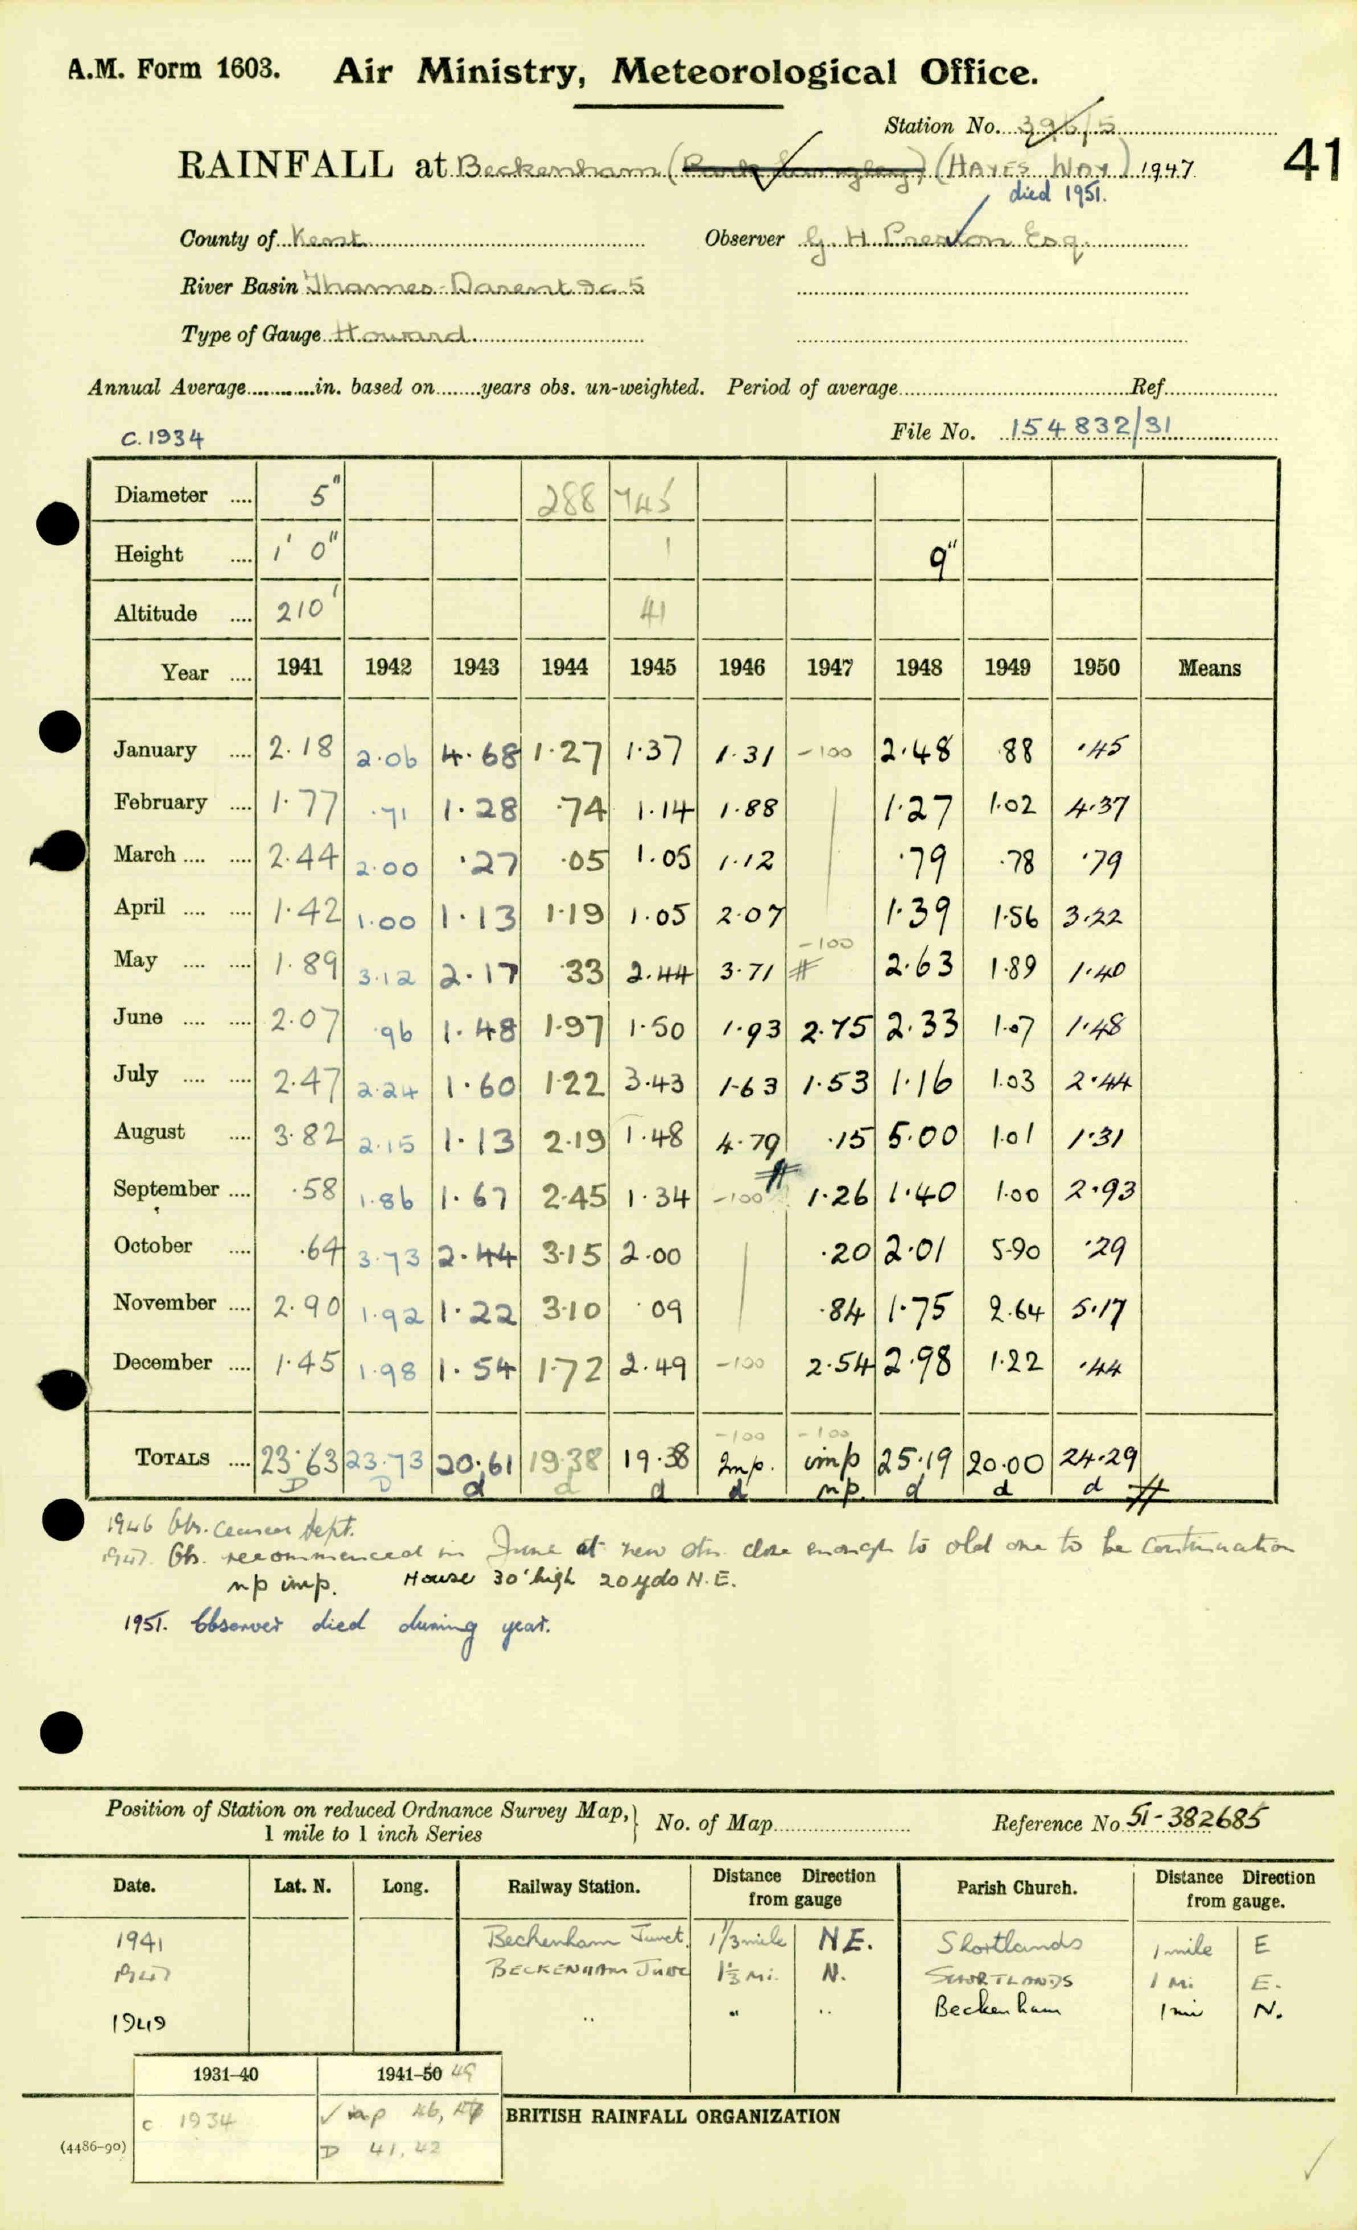 A.M. Form 1603. Air Ministry, Meteorological Office.
Station No. 396/5
41
RAINFALL at Beckenham (Park Langley) (HAYES WAY) 1947
died 1951.
County of Kent Observer G. H. Preston Esq.
River Basin Thames-Darent
Type of Gauge Howard
Annual Average in. based on years obs. un-weighted. Period of average Ref.
C. 1934 File No. 154832/31
Diameter .... 5" 288 745
Height .... 1' 0" 1 9"
Altitude .... 210' 41
Year .... 1941 1942 1943 1944 1945 1946 1947 1948 1949 1950 Means
January .... 2.18 2.06 4.68 1.27 1.37 1.31 -100 2.48 .88 .45
February .... 1.77 .71 1.28 .74 1.14 1.88 1.27 1.02 4.37
March .... .... 2.44 2.00 .27 .05 1.05 1.12 .79 .78 .79
April .... .... 1.42 1.00 1.13 1.19 1.05 2.07 1.39 1.56 3.22
May .... .... 1.89 3.12 2.17 .33 2.44 3.71 -100 # 2.63 1.89 1.40
June .... .... 2.07 .96 1.48 1.97 1.50 1.93 2.75 2.33 1.07 1.48
July .... .... 2.47 2.24 1.60 1.22 3.43 1.63 1.53 1.16 1.03 2.44
August .... 3.82 2.15 1.13 2.19 1.48 4.79 .15 5.00 1.01 1.31
September .... .58 1.86 1.67 2.45 1.34 -100 # 1.26 1.40 1.00 2.93
October .... .64 3.73 2.44 3.15 2.00 .20 2.01 5.90 .29
November .... 2.90 1.92 1.22 3.10 .09 .84 1.75 2.64 5.17
December .... 1.45 1.98 1.54 1.72 2.49 -100 2.54 2.98 1.22 .44
-100 -100
TOTALS .... 23.63 23.73 20.61 19.38 19.38 Imp. imp 25.19 20.00 24.29
D D d d d d np. d d d #
1946 Obs. ceased Sept.
1947. Ob. recommenced in June at new stn. close enough to old one to be continuation
np imp. House 30' high 20 yds N.E.
1951. Observer died during year.
Position of Station on reduced Ordnance Survey Map, 1 mile to 1 inch Series } No. of Map Reference No 51-382685
Date. Lat. N. Long. Railway Station. Distance Direction from gauge Parish Church. Distance Direction from gauge.
1941 Beckenham Junct. 1 1/3 mile NE. Shortlands 1 mile E
1947 BECKENHAM JUNC 1 1/3 Mi. N. SHORTLANDS 1 Mi. E.
1949 " " " Beckenham 1 mi N.
1931-40 1941-50 49
c 1934 ✓ imp 46, 47
D 41, 42
BRITISH RAINFALL ORGANIZATION
(4486-90)